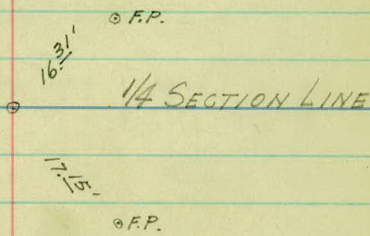 F.P.
16.31'
1/4 SECTION LINE
17.15'
F.P.